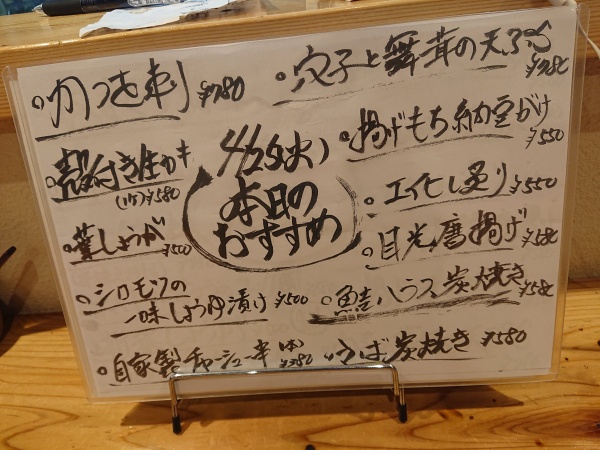 ○かつを刺 ¥780
○穴子と舞茸の天ぷら ¥780
殻付き生ガキ
(1ケ)¥580
4/25(火)
本日の
おすすめ
○揚げもち納豆がけ ¥550
○エイヒレ炙り ¥550
○葉しょうが ¥500
○目光唐揚げ ¥580
○シロモツの
一味しょうゆ漬け ¥500
○鮭ハラス炭焼き ¥580
○自家製チャーシュー串(1本) ¥380
○さば炭焼き ¥580